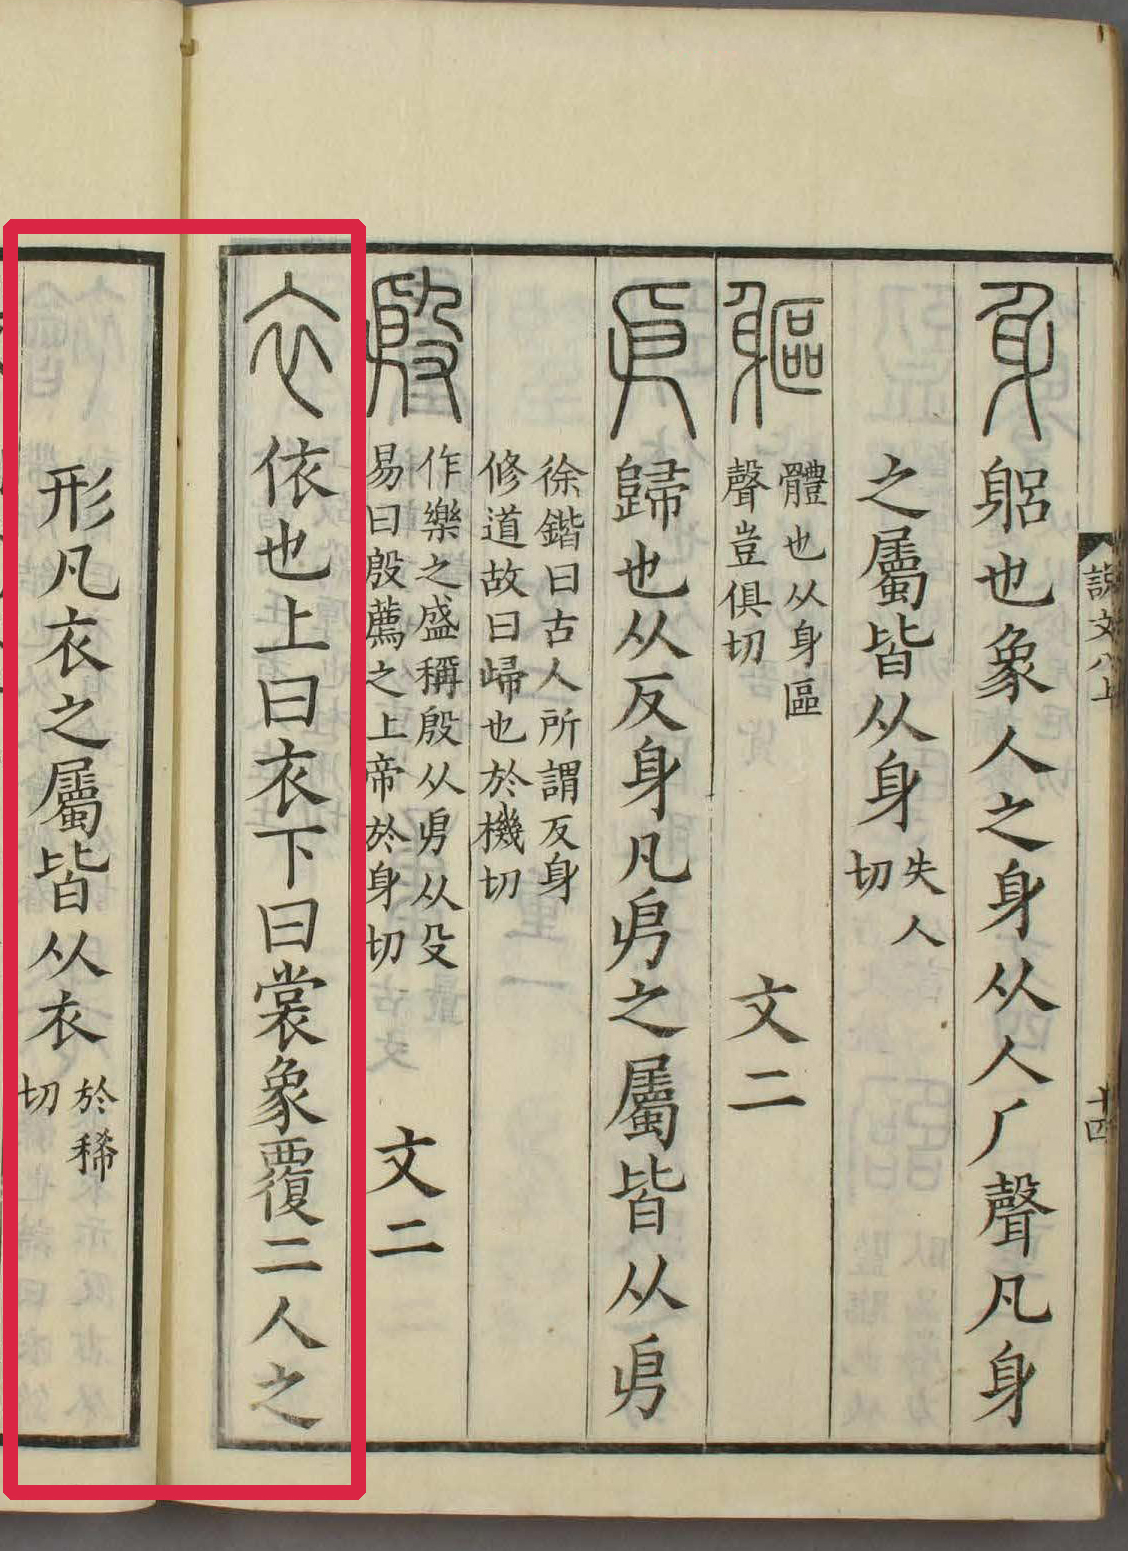 身躳也象人之身从人厂聲凡身
之屬皆从身失人切
軀體也从身區聲豈俱切 文二
㐆歸也从反身凡㐆之屬皆从㐆
徐鍇曰古人所謂反身修道故曰歸也於機切
殷作樂之盛稱殷从㐆从殳易曰殷薦之上帝於身切 文二
衣依也上曰衣下曰裳象覆二人之
形凡衣之屬皆从衣於稀切
說文八上
十四